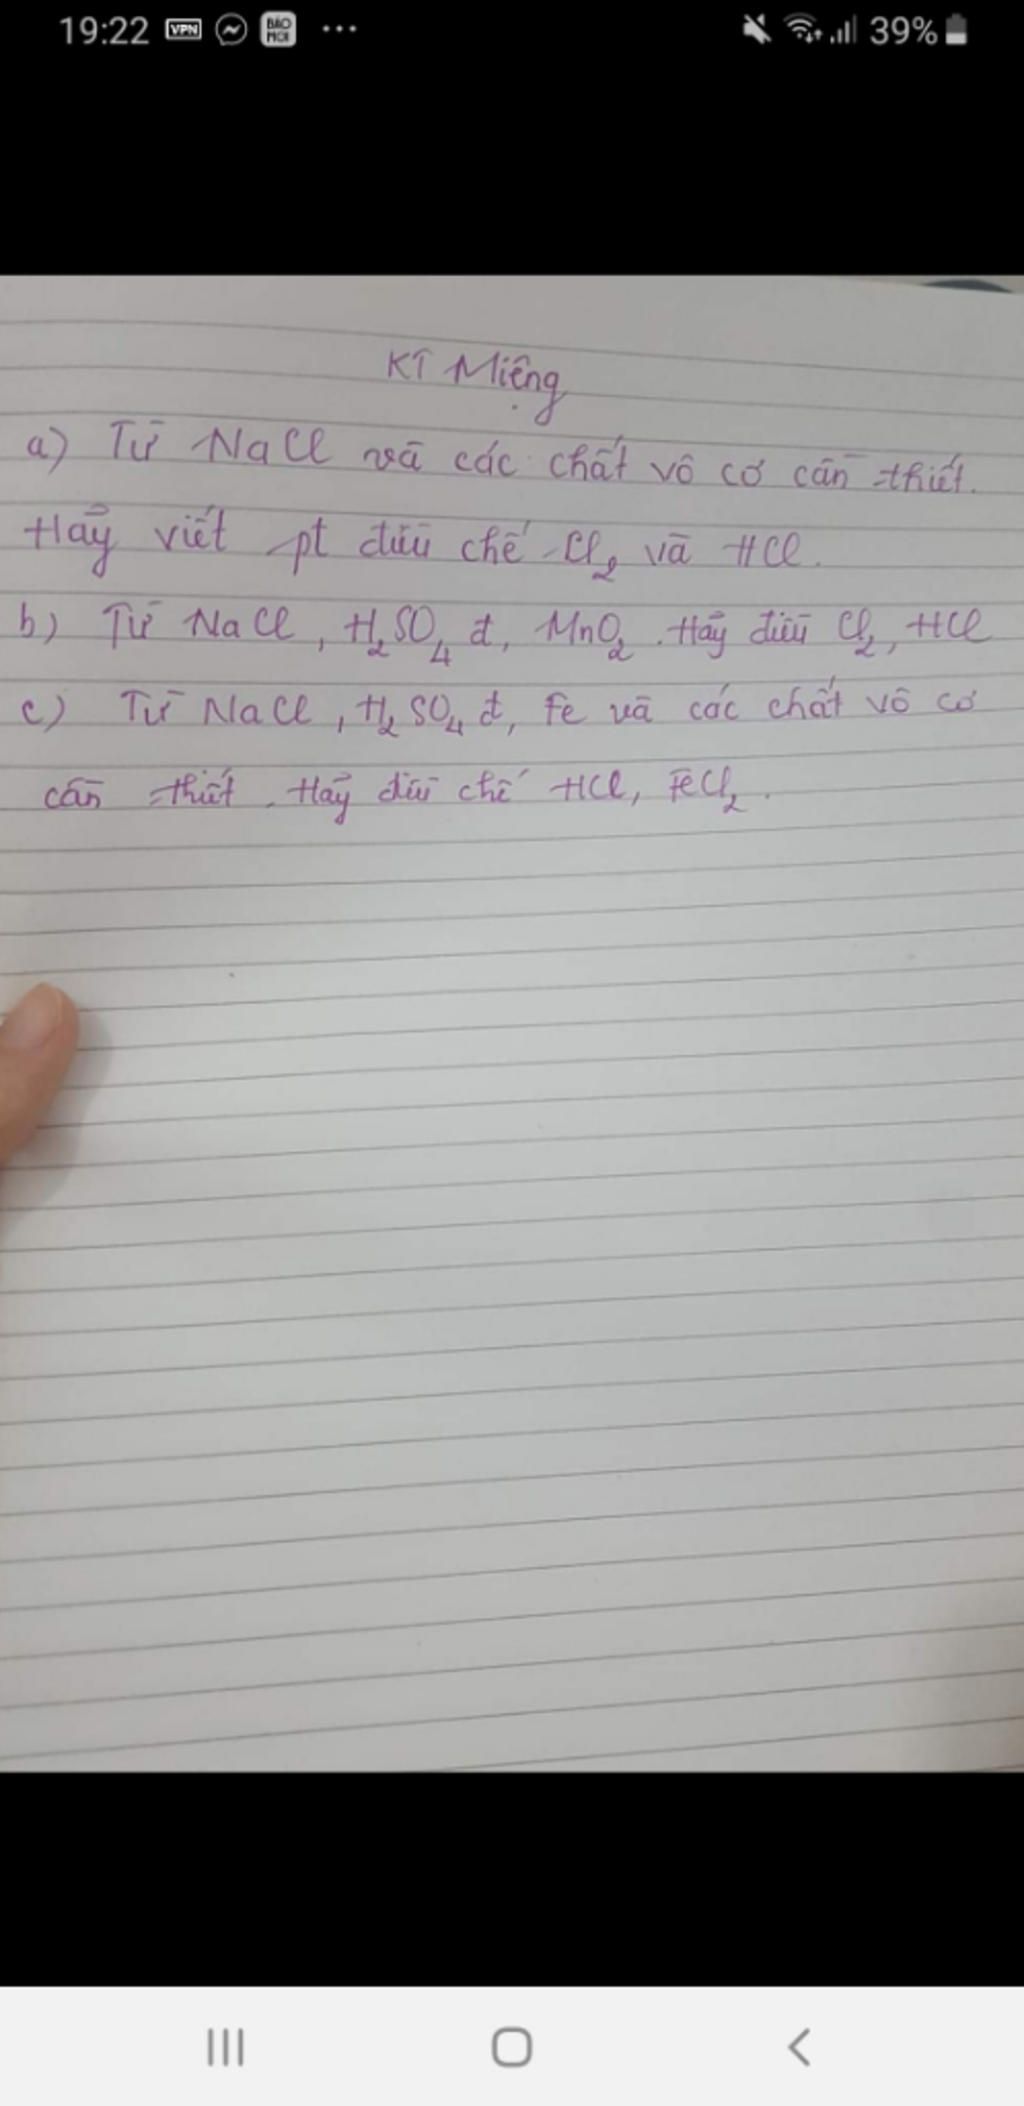 19:22 VPN BÁO MỚI ... 39%
KT Miệng
a) Từ NaCl và các chất vô cơ cần thiết.
Hãy viết pt điều chế Cl₂ và HCl.
b) Từ NaCl, H₂SO₄ đ, MnO₂. Hãy điều Cl₂, HCl
c) Từ NaCl, H₂SO₄ đ, Fe và các chất vô cơ
cần thiết. Hãy điều chế HCl, FeCl₂.